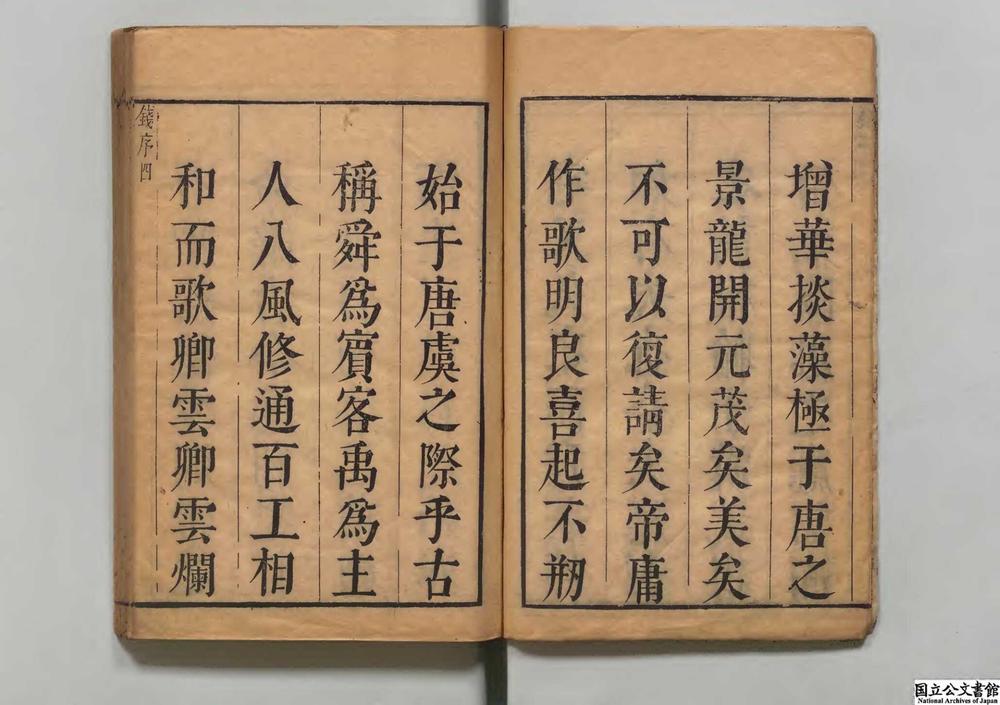 增華掞藻極于唐之
景龍開元茂矣美矣
不可以復請矣帝庸
作歌明良喜起不刱
始于唐虞之際乎古
稱舜爲賓客禹爲主
人八風修通百工相
和而歌卿雲卿雲爛
錢序 四
国立公文書館
National Archives of Japan